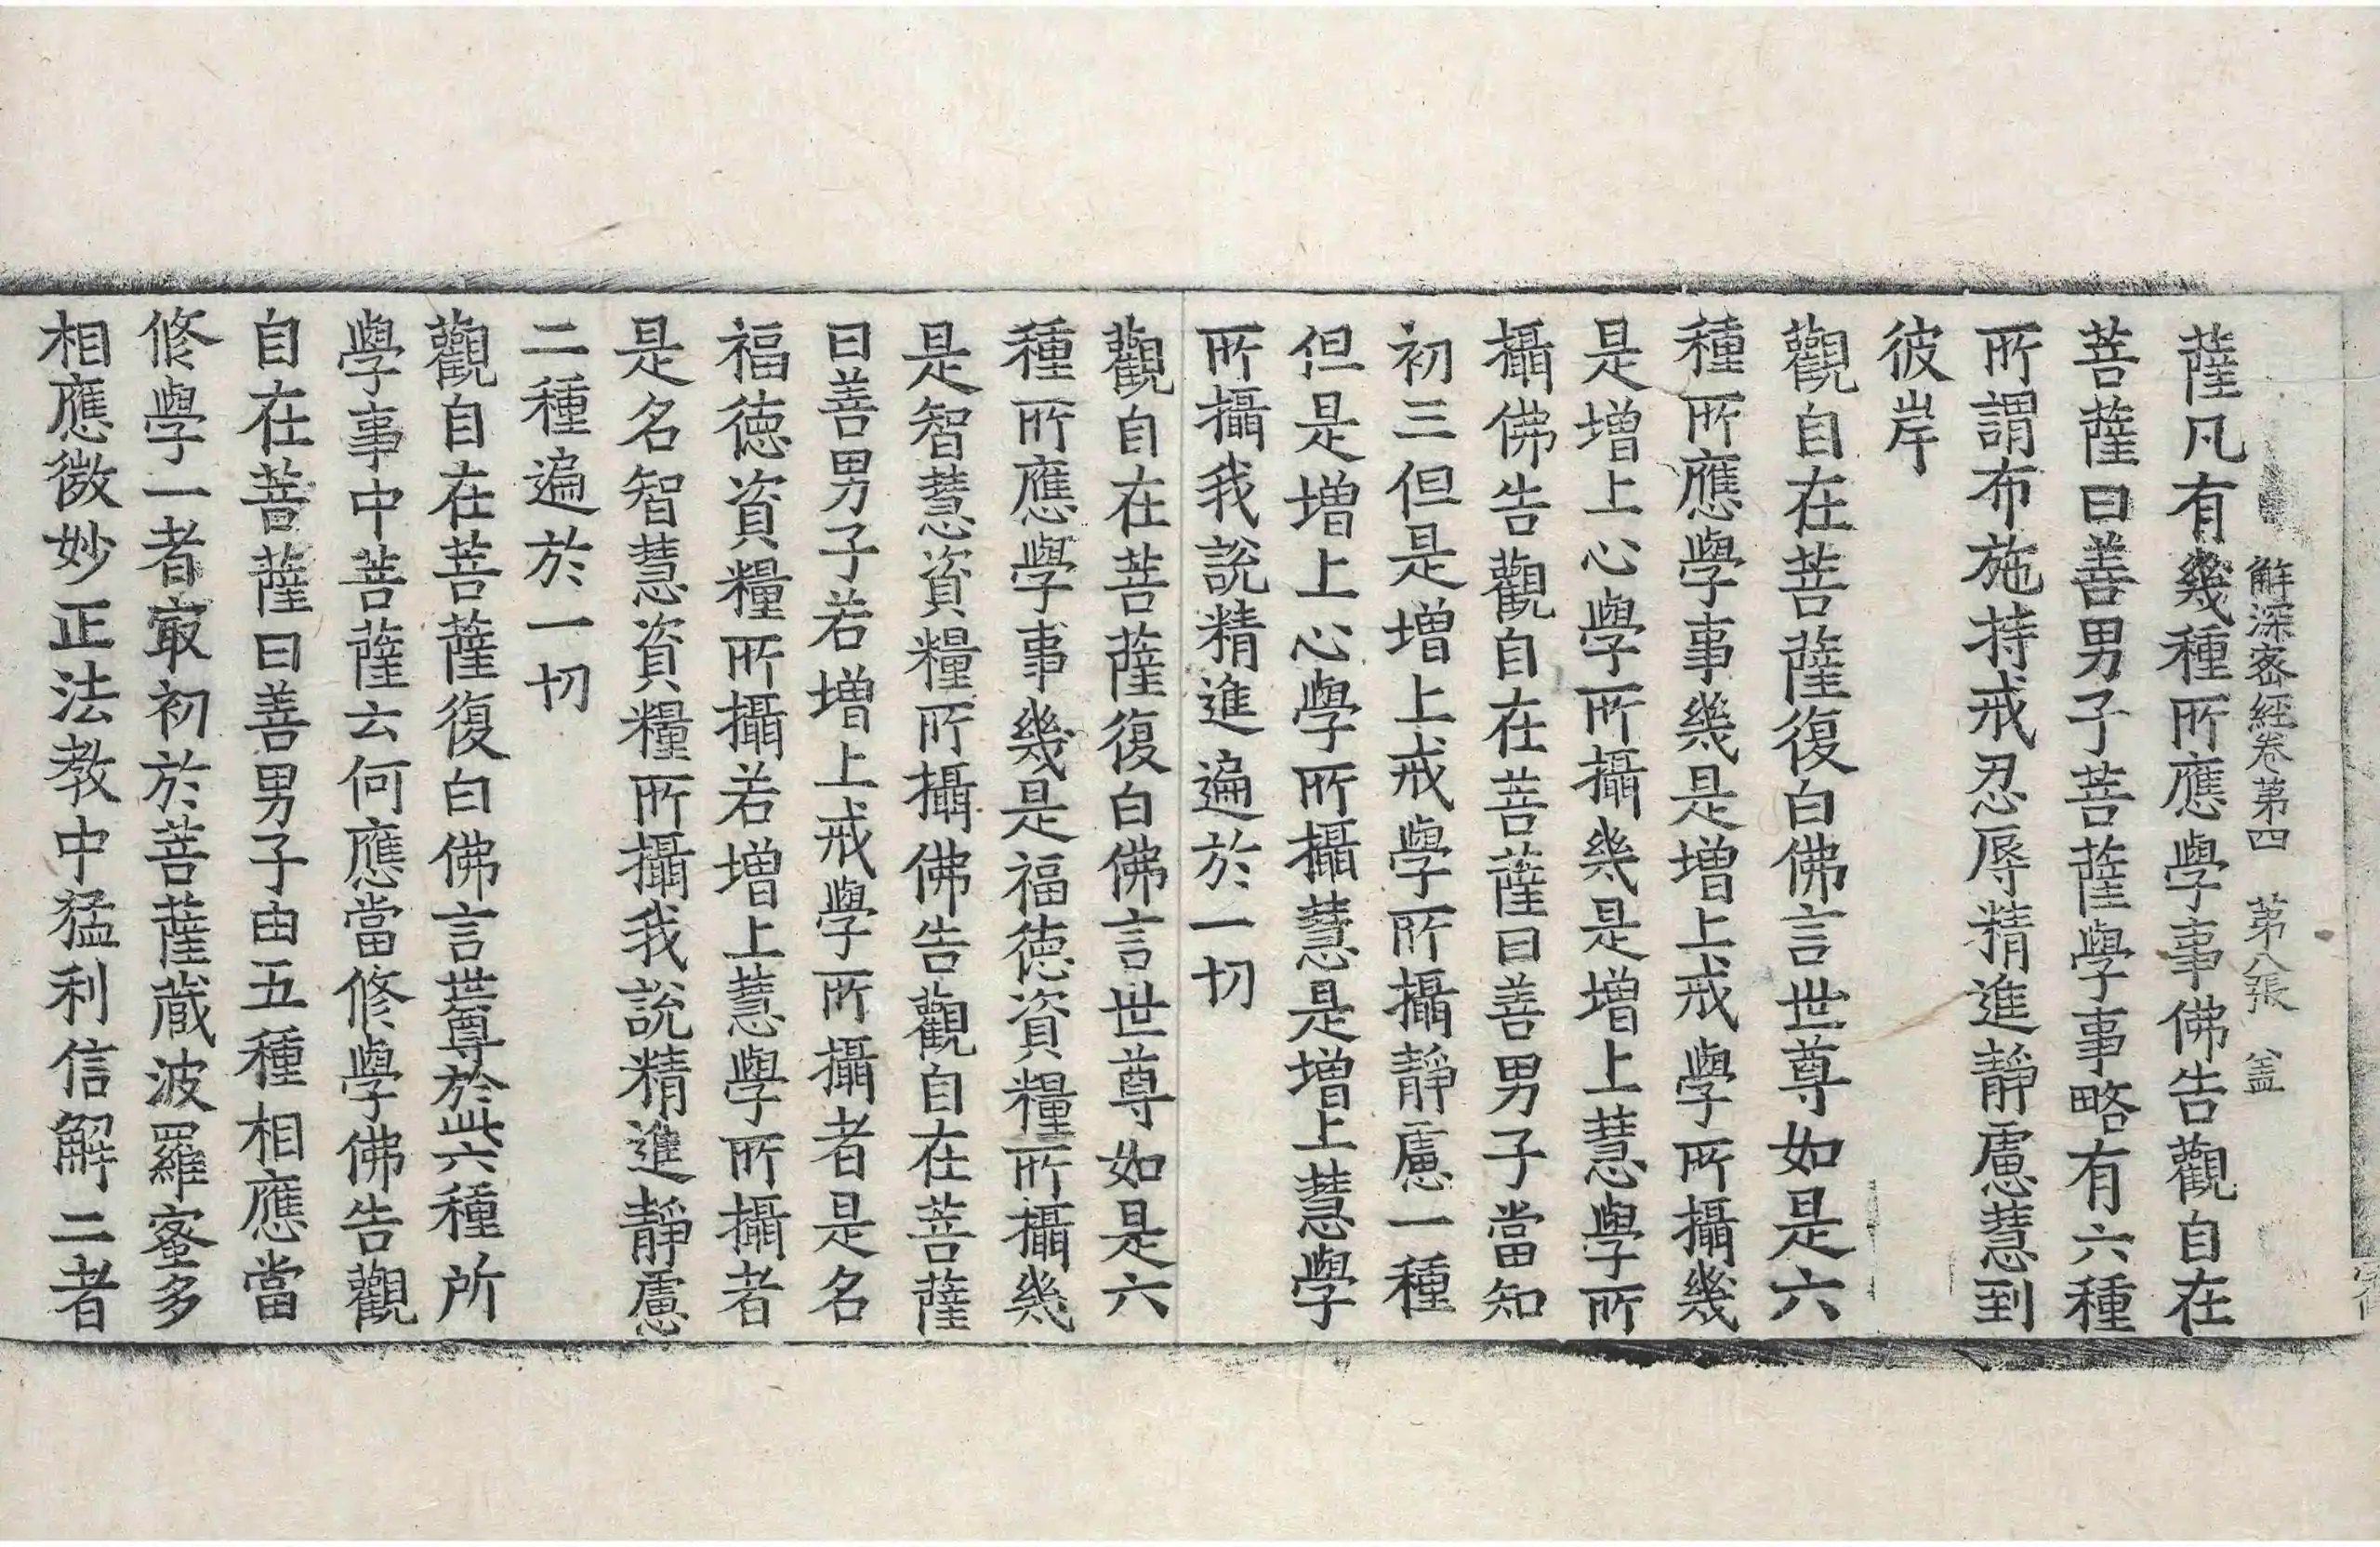 解深密經卷第四 第八張 盖
薩凡有幾種所應學事佛告觀自在
菩薩曰善男子菩薩學事略有六種
所謂布施持戒忍辱精進靜慮慧到
彼岸
觀自在菩薩復白佛言世尊如是六
種所應學事幾是增上戒學所攝幾
是增上心學所攝幾是增上慧學所
攝佛告觀自在菩薩曰善男子當知
初三但是增上戒學所攝靜慮一種
但是增上心學所攝慧是增上慧學
所攝我說精進遍於一切
觀自在菩薩復白佛言世尊如是六
種所應學事幾是福德資糧所攝幾
是智慧資糧所攝佛告觀自在菩薩
曰善男子若增上戒學所攝者是名
福德資糧所攝若增上慧學所攝者
是名智慧資糧所攝我說精進靜慮
二種遍於一切
觀自在菩薩復白佛言世尊於此六種所
學事中菩薩云何應當修學佛告觀
自在菩薩曰善男子由五種相應當
修學一者寂初於菩薩藏波羅蜜多
相應微妙正法教中猛利信解二者